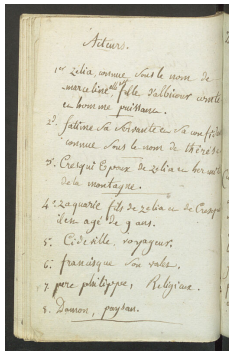 Acteurs.
1er Zelia, connue sous le nom de
marceline, fille d'albinour comte
en homme puissance.
2e. fatime sa suivante en sa
connue sous le nom de thérèse
3e. Cresqui Epoux de zelia en
de la montagne.
4e. zaquarle fils de zelia en de Cresqui
il en agé de 9 ans.
5e. Cideville, voyageur.
6. francisque son valet.
7. pere philippe, Religieux.
8. Damon, paysan.